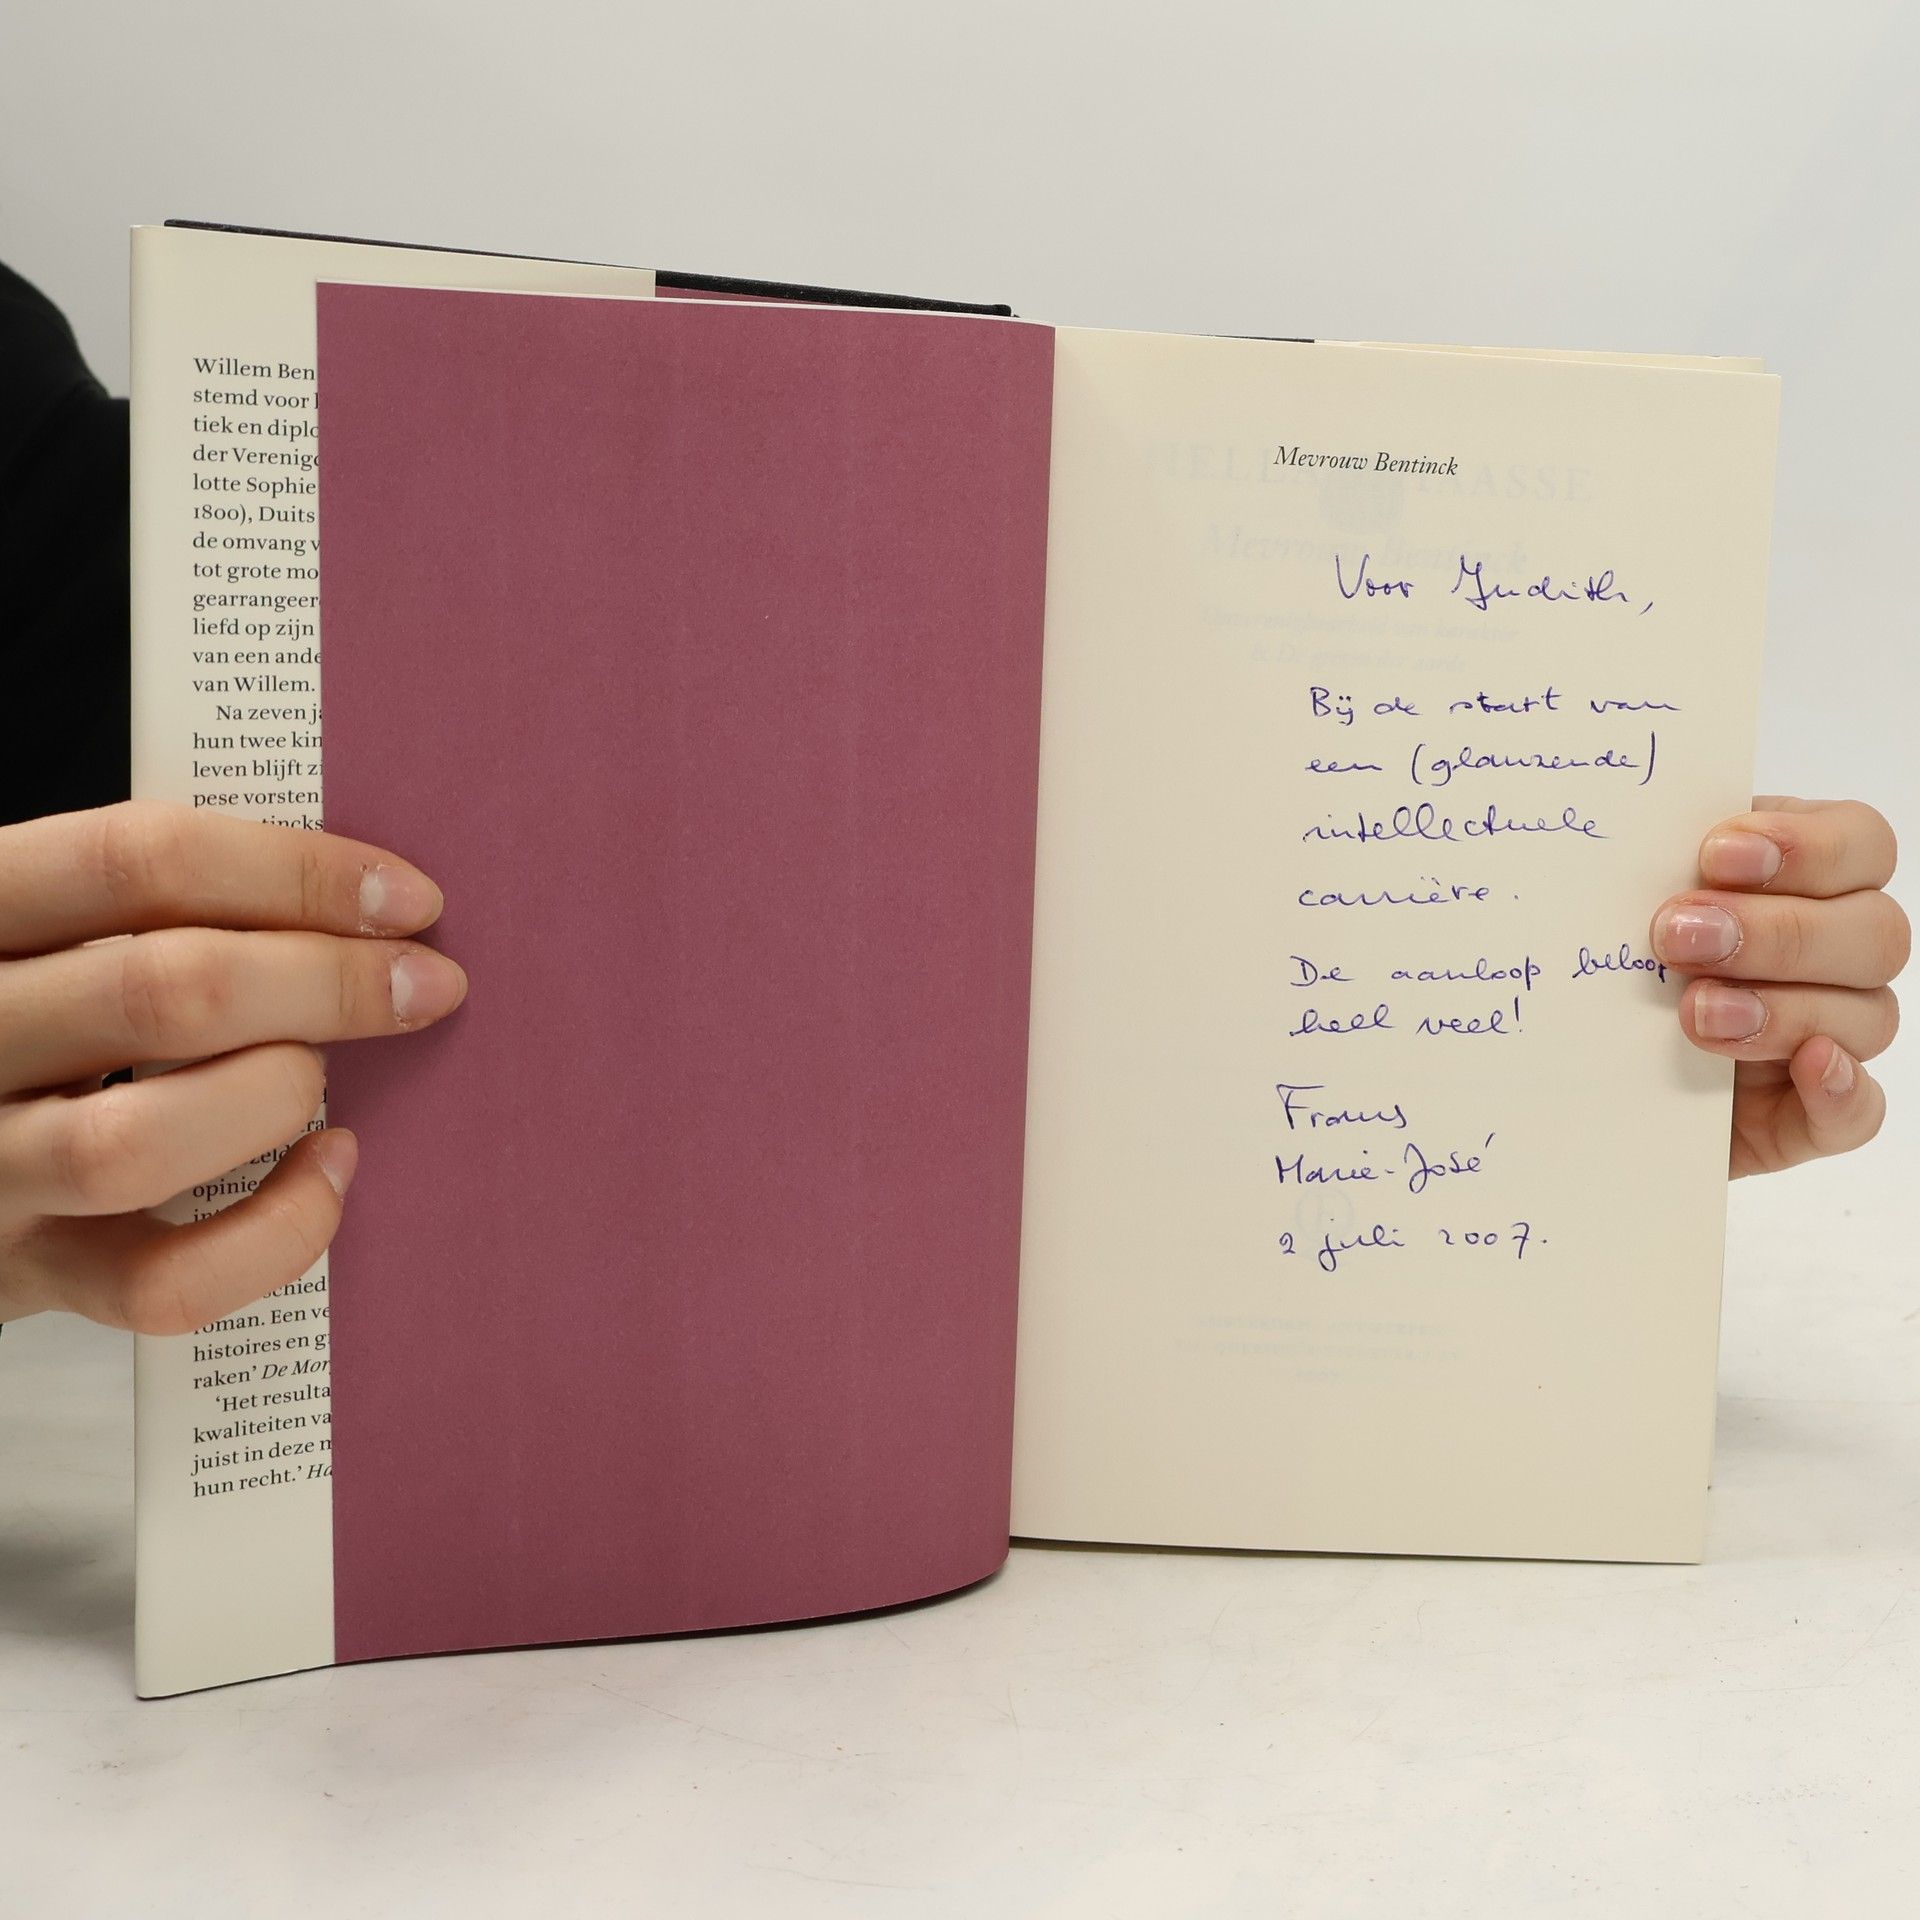 Willem Ben
stemd voor
tiek en diplo
der Verenigd
lotte Sophie
1800), Duits
de omvang v
tot grote mo
gearrangeer
liefd op zijn
van een ande
van Willem.
Na zeven ja
hun twee kin
leven blijft zi
pese vorsten
tincks
opinie
schied
roman. Een ve
histoires en g
raken’ De Mor
‘Het resulta
kwaliteiten va
juist in deze m
hun recht.’ Ha
Mevrouw Bentinck
Voor Judith,
Bij de start van
een (glanzende)
intellectuele
carrière.
De aanloop beloop
heel veel!
Frans
Marie-José
2 juli 2007.